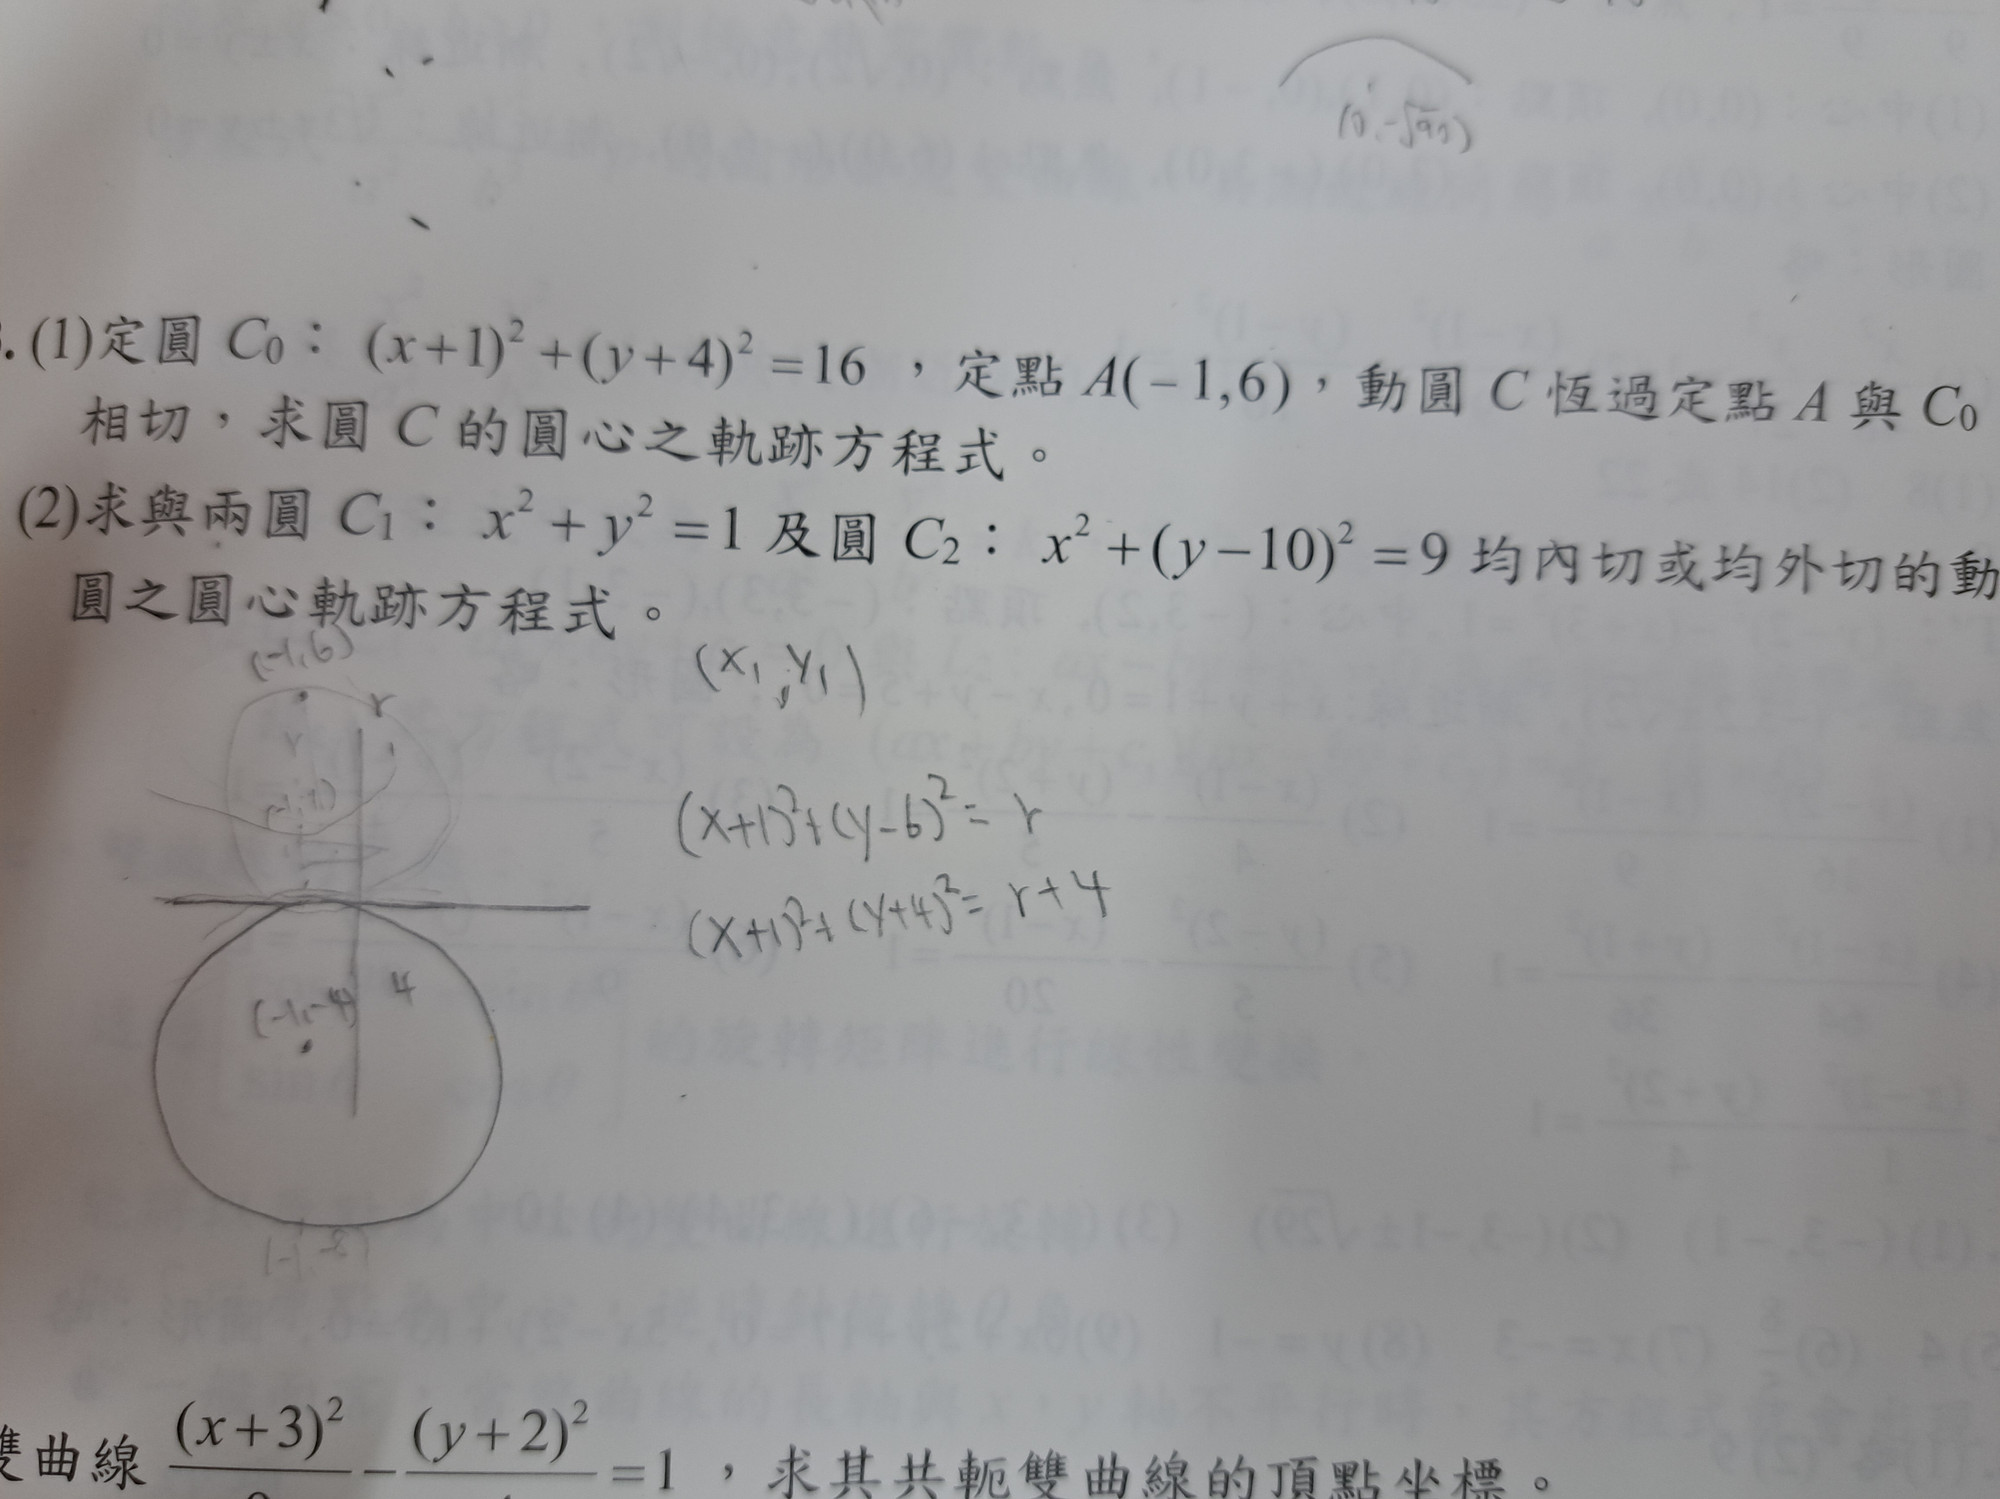 (0,-√90)
(1)定圓 C₀：(x+1)²+(y+4)²=16，定點 A(-1,6)，動圓 C 恆過定點 A 與 C₀
相切，求圓 C 的圓心之軌跡方程式。
(2)求與兩圓 C₁：x²+y²=1 及圓 C₂：x²+(y-10)²=9 均內切或均外切的動
圓之圓心軌跡方程式。
(-1,6)
r
r
(x₁,y₁)
(x+1)²+(y-6)²=r
(x+1)²+(y+4)²=r+4
(-1,-4) 4
(-1,-8)
雙曲線 (x+3)²/ - (y+2)²/ =1，求其共軛雙曲線的頂點坐標。